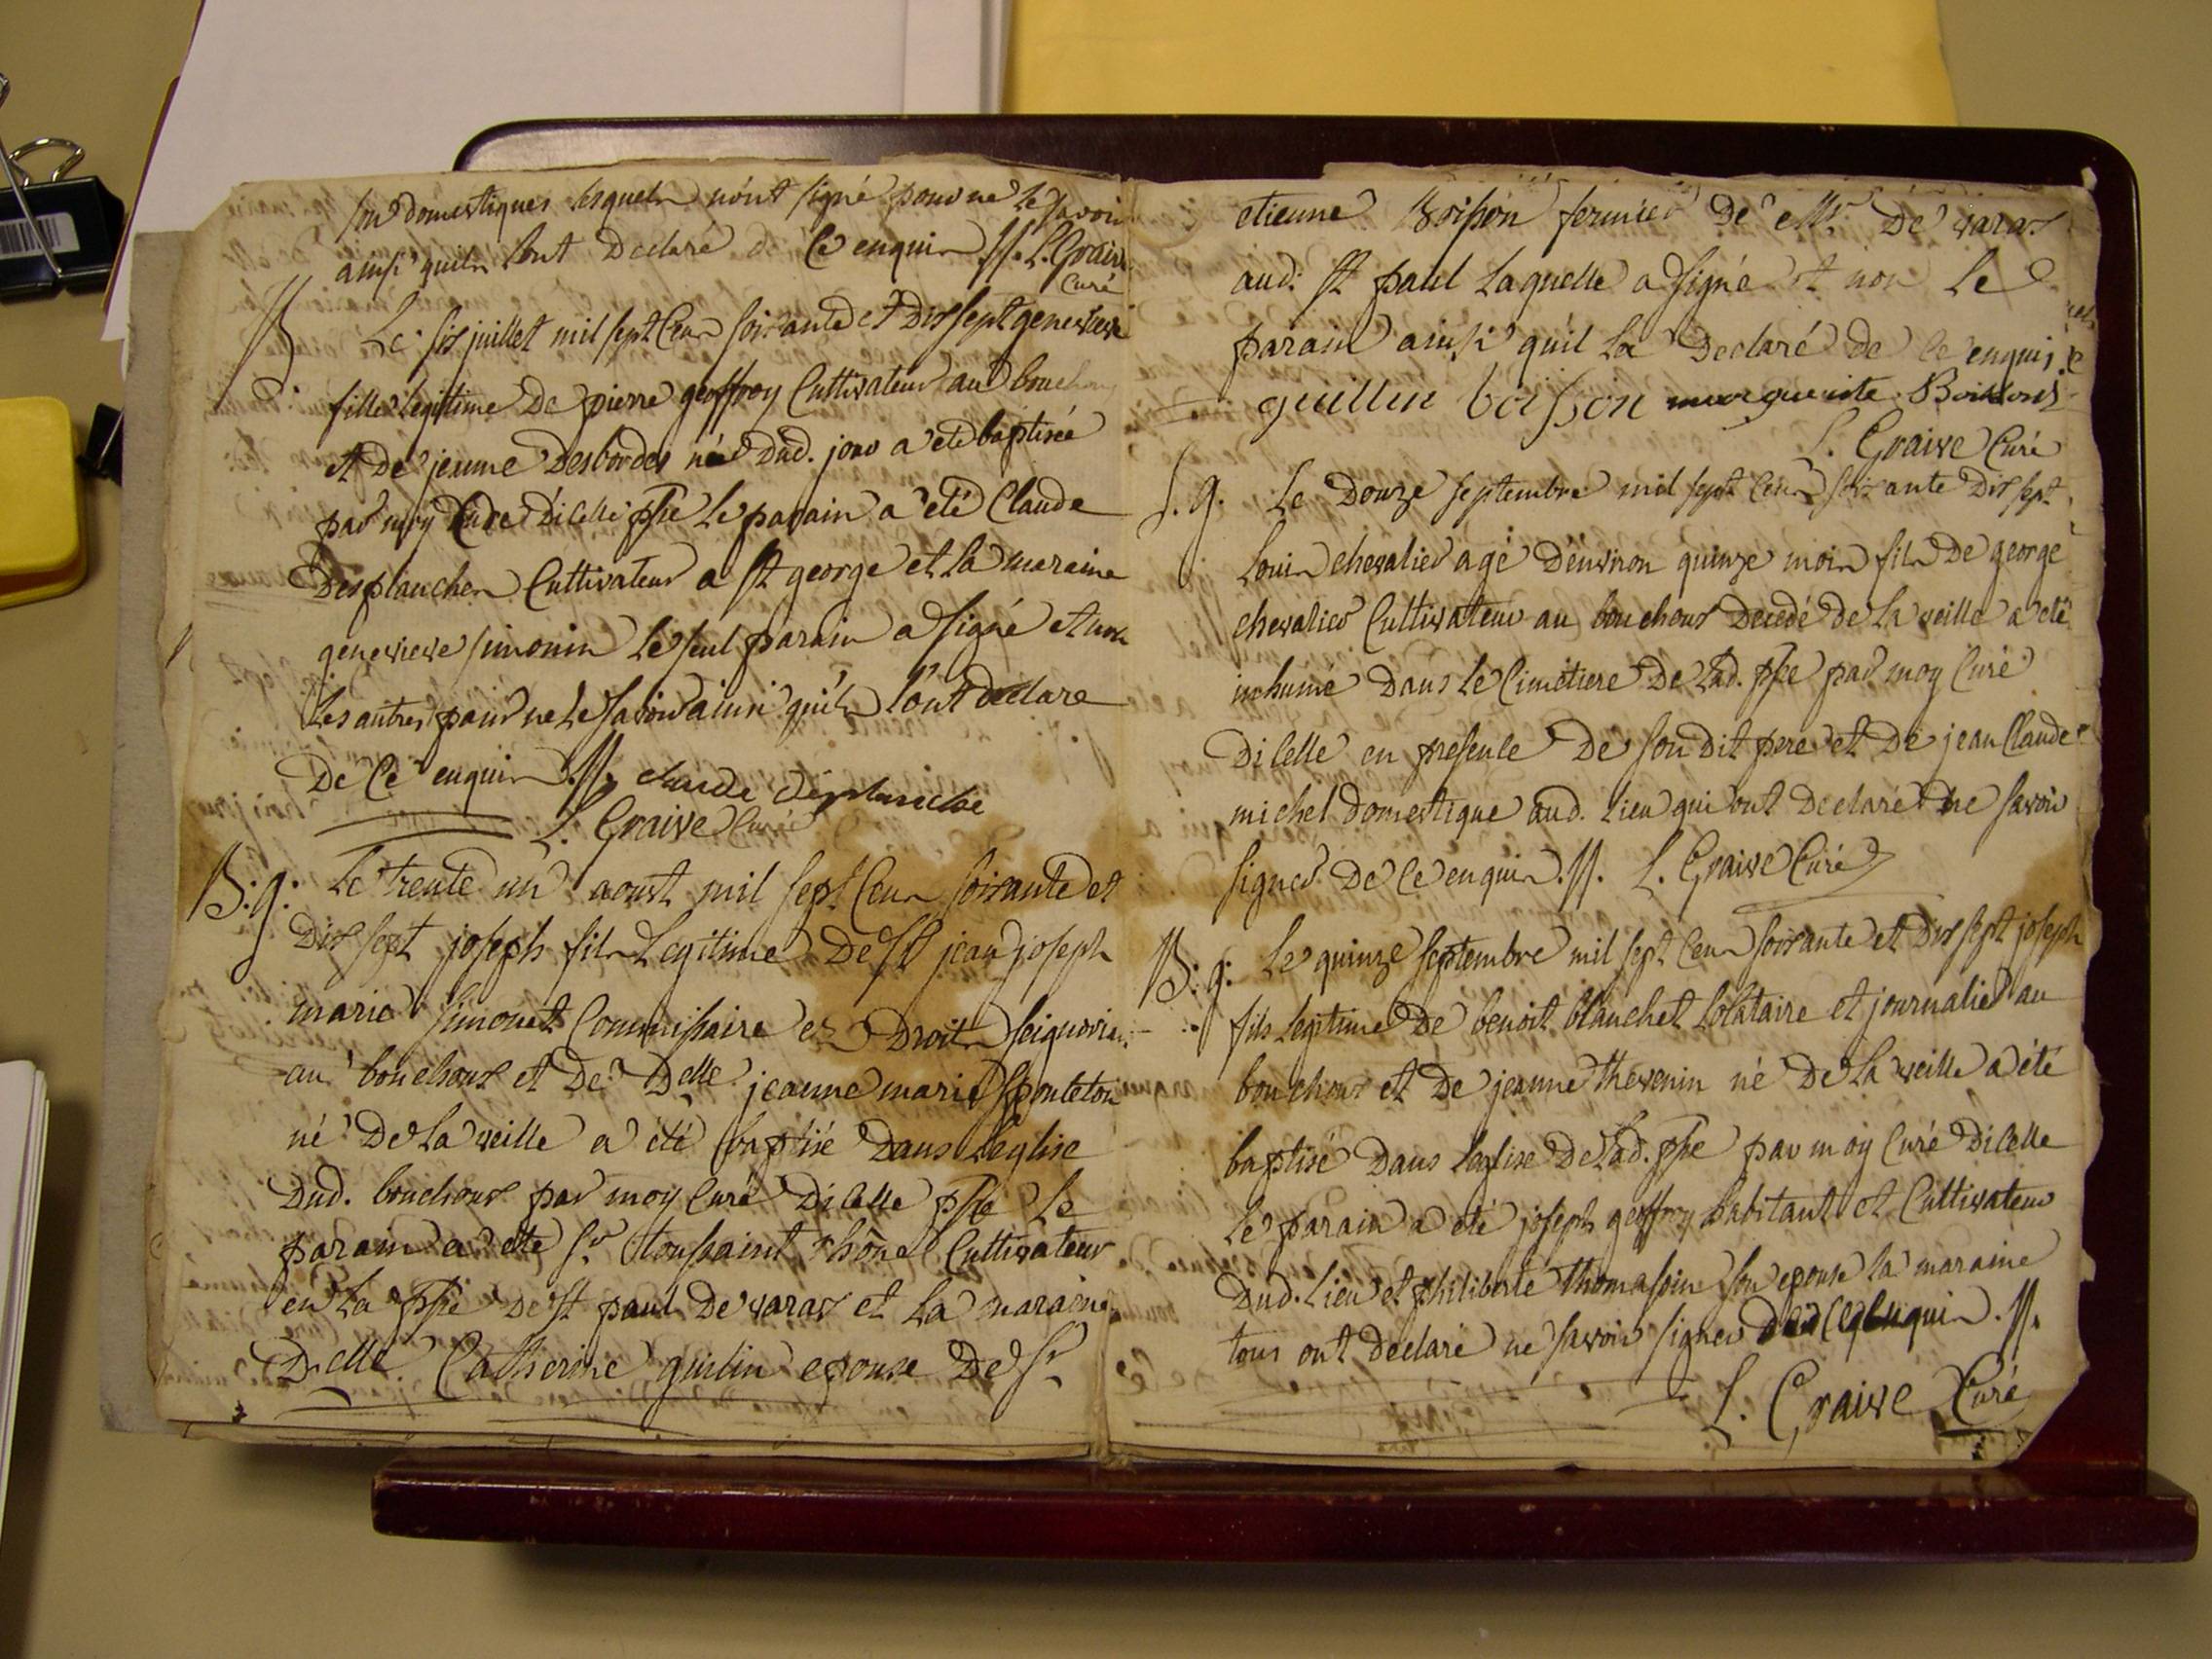 son domestiques lesquels n'ont signé pour ne le savoir
ainsi quils l'ont declaré de ce enquis ff. L. Graive
curé
B Le six juillet mil sept cens soixante et dix sept genevieve
fille legitime de pierre geoffroy Cultivateur au bouchoux
et de jeanne Desbordes née dud. jour a eté baptisée
par moy Curé dicelle psse le parain a eté Claude
Desplanches Cultivateur a st george et la maraine
genevieve simonin le seul parain a signé et non
les autres pour ne le savoir ainsi quils l'ont declaré
de ce enquis ff. claude deplanche
L. Graive Curé
B. g. Le trente un aoust mil sept cens soixante et
dix sept joseph fils legitime de Sr jean joseph
marie simonet Commissaire es droits seigneuriaux
au bouchoux et de Delle jeanne marie
né de la veille a été baptisé dans leglise
dud. bouchoux par moy Curé dicelle psse le
parain a ete Sr toussaint Cultivateur
en la psse de st paul de varax et la maraine
Delle Catherine guilin epouse de Sr
etienne Boisson fermier de Mr De varax
aud. st paul laquelle a signé et non le
parain ainsi quil la declaré de ce enquis
guillin boisson marguerite Boisson
L. Graive Curé
S. g. Le douze septembre mil sept cens soixante dix sept
Louis chevalier agé d'environ quinze mois fils de george
chevalier Cultivateur au bouchoux decedé de la veille a eté
inhumé dans le Cimetiere de lad. psse par moy Curé
dicelle en presence de son dit pere et de jean Claude
michel domestique aud. lieu qui ont declaré ne savoir
signer de ce enquis. ff. L. Graive Curé
B. g. Le quinze septembre mil sept cens soixante et dix sept joseph
fils legitime de benoit blanchet locataire et journalier au
bouchoux et de jeanne thevenin né de la veille a été
baptisé dans leglise de lad. psse par moy Curé dicelle
le parain a eté joseph geoffroy habitant et Cultivateur
dud. lieu et philiberte thomassin son epouse la maraine
tous ont declaré ne savoir signer de ce enquis. ff.
L. Graive Curé